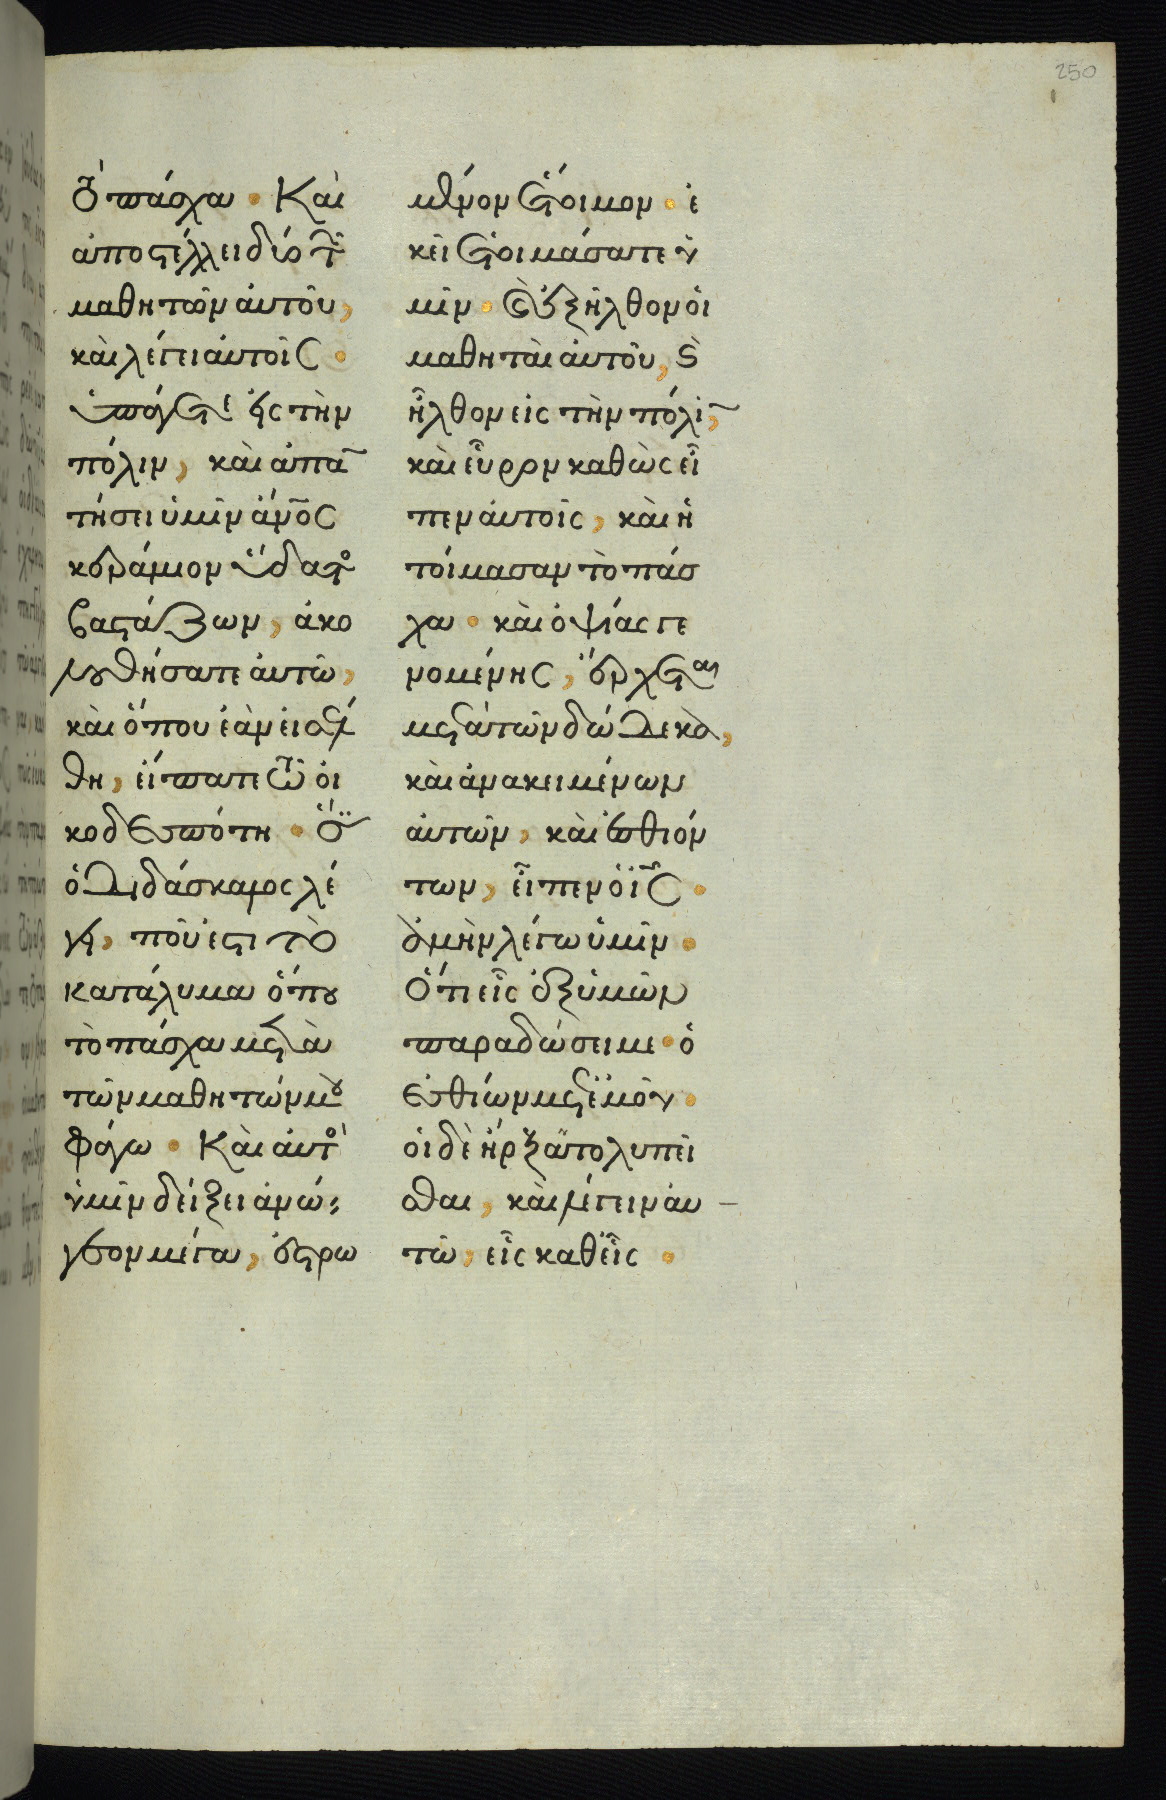 250
τὸ πάσχα · Καὶ
ἀποστέλλει δύο τῶν
μαθητῶν αὐτοῦ,
καὶ λέγει αὐτοῖς ·
ὑπάγετε εἰς τὴν
πόλιν, καὶ ἀπαν
τήσει ὑμῖν ἄνος
κεράμιον ὕδατος
βαστάζων, ἀκο
λουθήσατε αὐτῶ,
καὶ ὅπου ἐὰν εἰσέλ
θη, εἴπατε τῶ οἰ
κοδεσπότη · ὅτι
ὁ διδάσκαλος λέ
γει, ποῦ ἐστι τὸ
κατάλυμα ὅπου
τὸ πάσχα μετὰ
τῶν μαθητῶν μου
φάγω · Καὶ αὐτὸς
ὑμῖν δείξει ἀνώ,
γεον μέγα, ἐστρω
μένον ἕτοιμον · ἐ
κεῖ ἑτοιμάσατε ἡ
μῖν · Καὶ ἐξῆλθον οἱ
μαθηταὶ αὐτοῦ, καὶ
ἦλθον εἰς τὴν πόλιν,
καὶ εὗρον καθὼς εἶ
πεν αὐτοῖς, καὶ ἡ
τοίμασαν τὸ πάσ
χα · καὶ ὀψίας γε
νομένης, ἔρχεται
μετὰ τῶν δώδεκα,
καὶ ἀνακειμένων
αὐτῶν, καὶ ἐσθιόν
των, εἶπεν ὁ ις ·
ἀμὴν λέγω ὑμῖν ·
Ὅτι εἷς ἐξ ὑμῶν
παραδώσει με · ὁ
ἐσθίων μετ' ἐμοῦ ·
οἱ δὲ ἤρξαντο λυπεῖ
σθαι, καὶ λέγειν αὐ
τῶ, εἷς καθ' εἷς ·